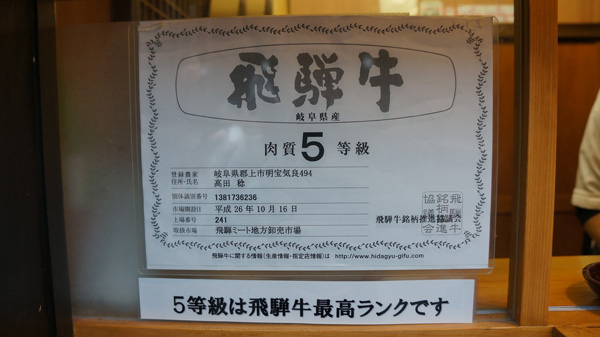 飛騨牛
岐阜県産
肉質5等級
登録農家 岐阜県郡上市明宝気良494
住所・氏名 高田 稔
個体識別番号 1381736236
市場開設日 平成26年10月16日
上場番号 241
取扱市場 飛騨ミート地方卸売市場
飛騨牛銘柄推進協議会
飛騨牛銘柄推進協議会
飛騨牛に関する情報(生産情報・指定店情報)は http://www.hidagyu-gifu.com/
5等級は飛騨牛最高ランクです